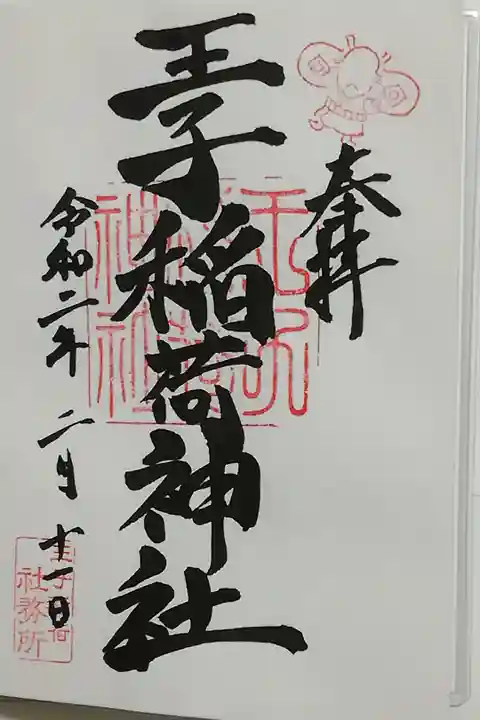 奉拝
王子稲荷神社
令和二年 二月 十一日
王子稲荷
社務所